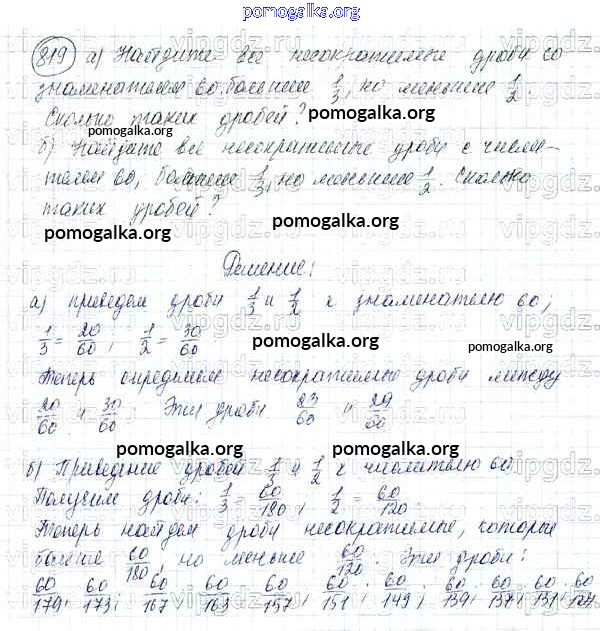 pomogalka.org
819 а) Найдите все несократимые дроби со
знаменателем 60, большие 1/3, но меньшие 1/2.
Сколько таких дробей? pomogalka.org
pomogalka.org
б) Найдите все несократимые дроби с числи-
телем 60, большие 1/3, но меньшие 1/2. Сколько
таких дробей?
pomogalka.org pomogalka.org
Решение:
а) приведем дроби 1/3 и 1/2 к знаменателю 60;
pomogalka.org
1/3 = 20/60; 1/2 = 30/60
pomogalka.org
Теперь определим несократимые дроби между
20/60 и 30/60. Эти дроби 23/60 и 29/60
pomogalka.org pomogalka.org
б) Приведение дробей 1/3 и 1/2 к числителю 60.
Получим дроби: 1/3 = 60/180, 1/2 = 60/120.
Теперь найдем дроби несократимые, которые
больше 60/180, но меньше 60/120. Эти дроби:
60/179; 60/173; 60/167; 60/163; 60/157; 60/151; 60/149; 60/139; 60/137; 60/131; 60/127